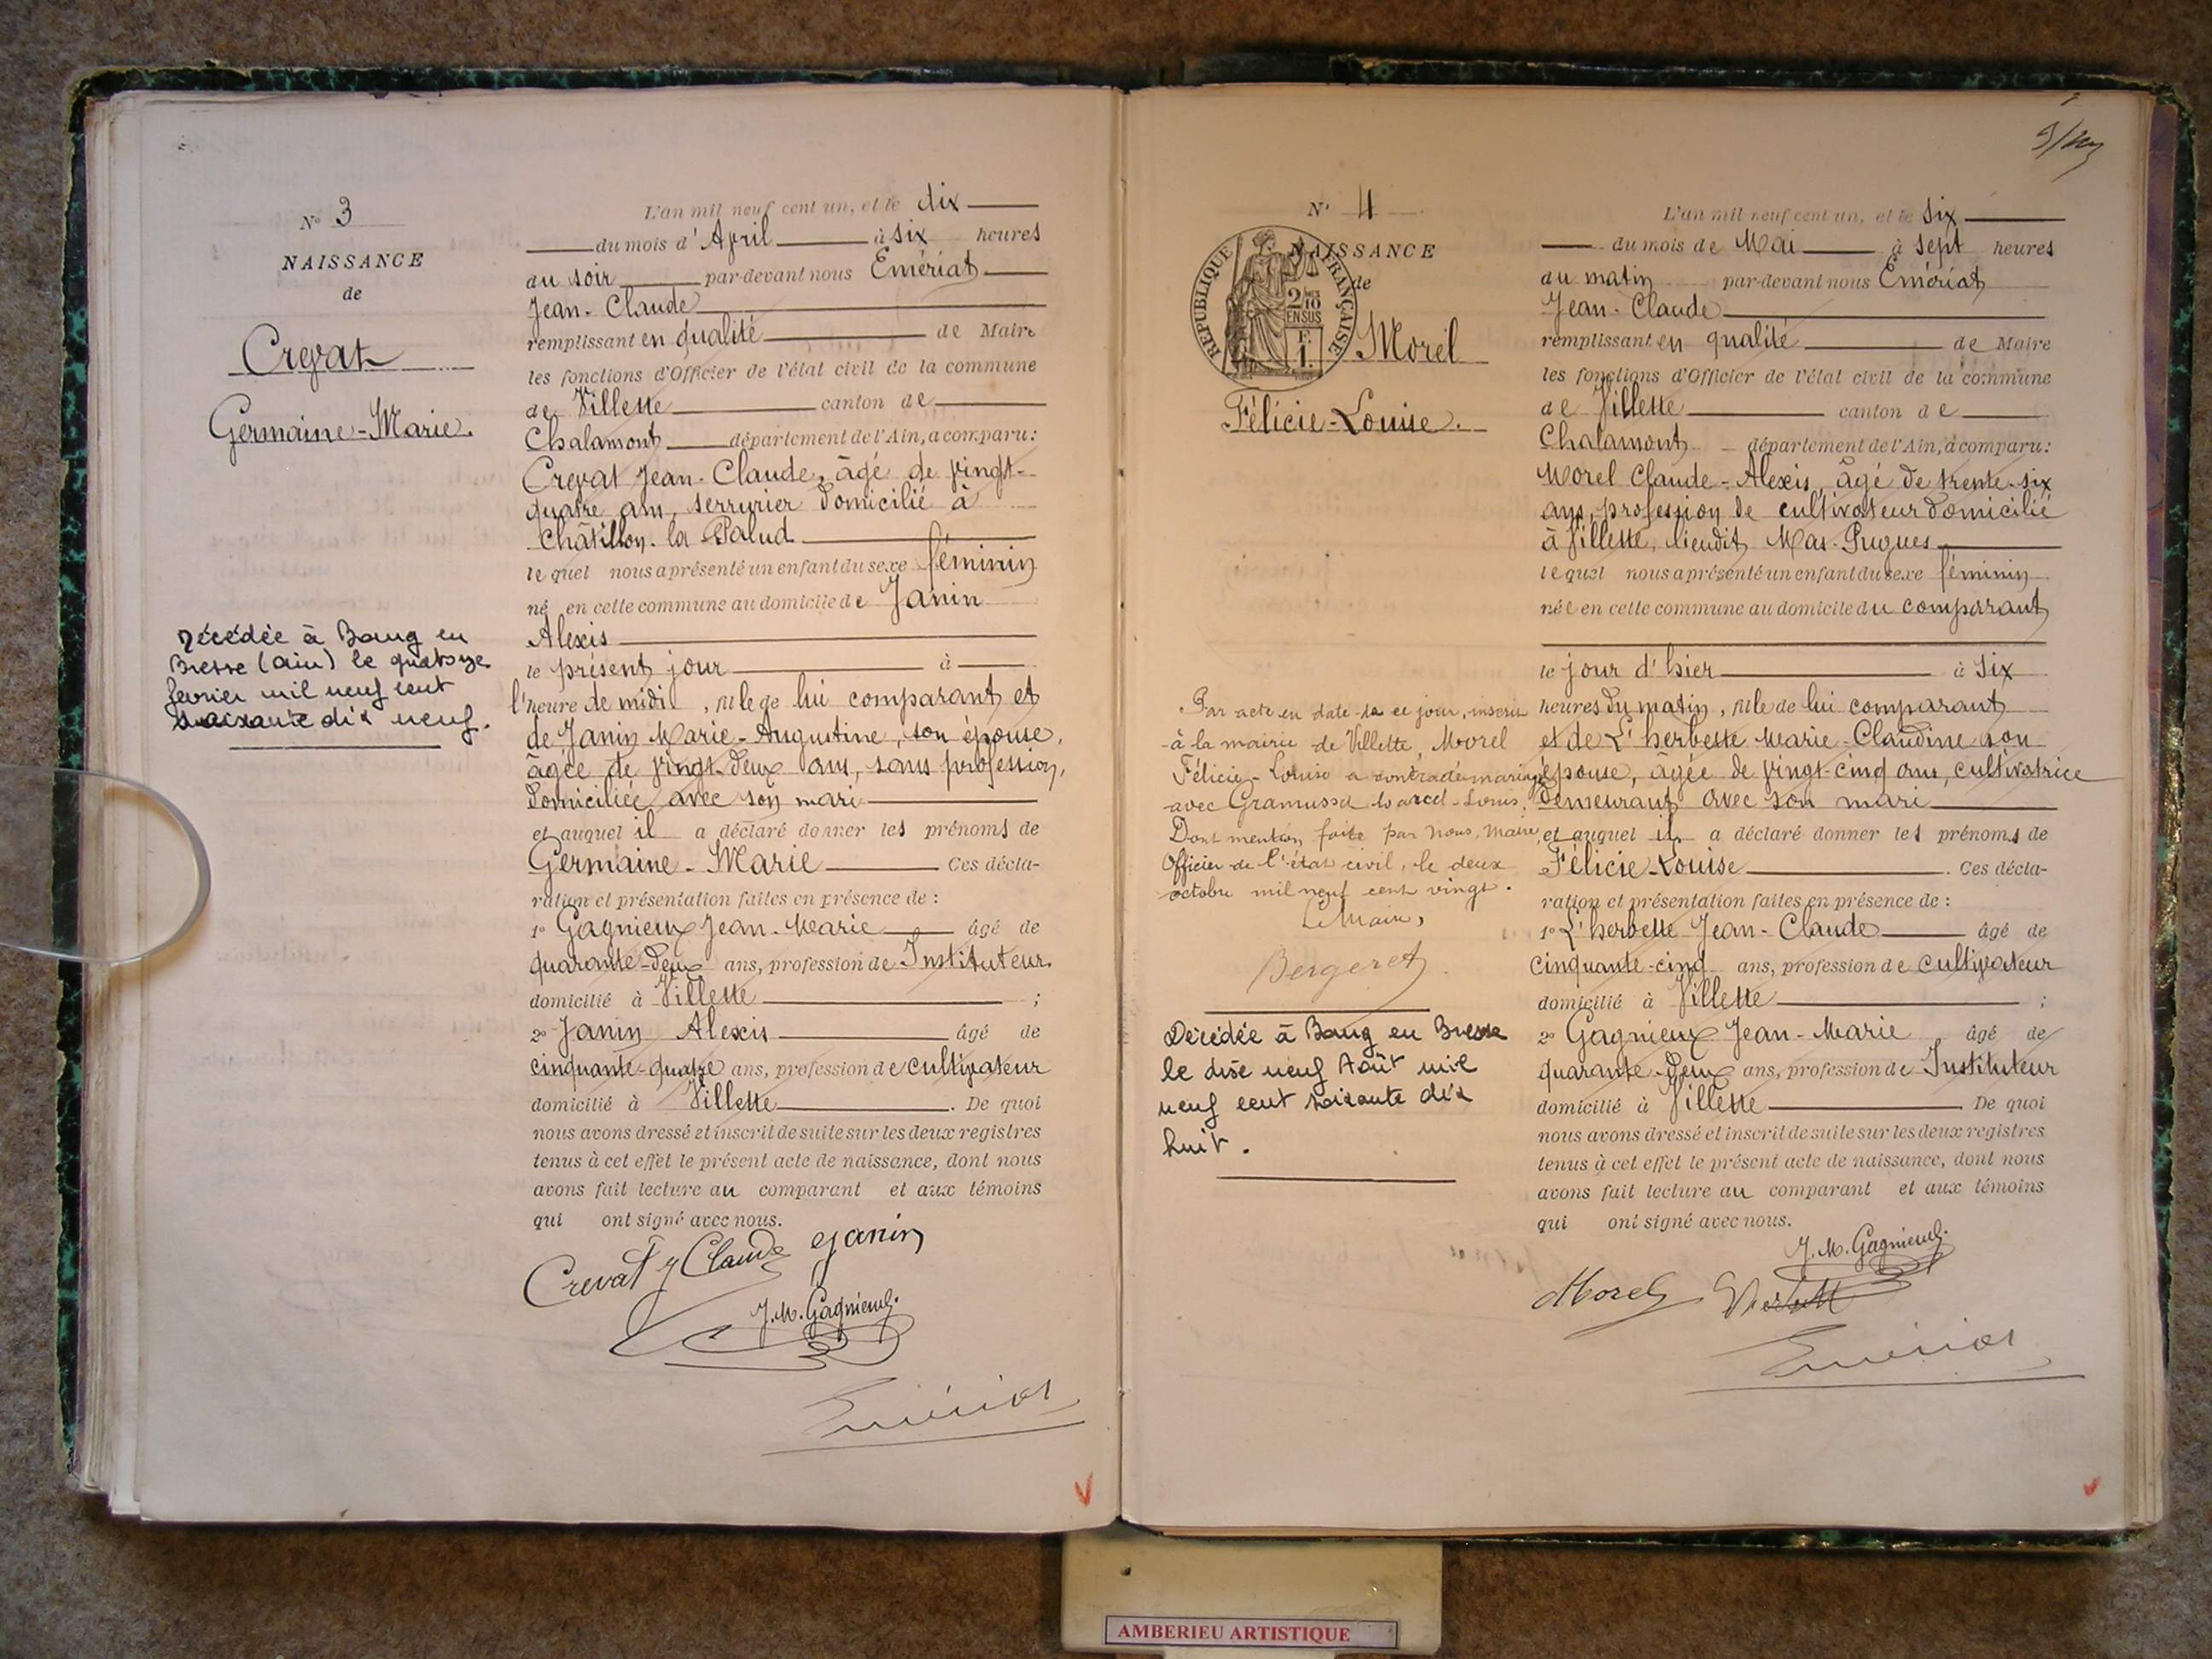 N° 3
NAISSANCE
de
Crevat
Germaine-Marie.
Décédée à Bourg en
Bresse (Ain) le quatorze
février mil neuf cent
soixante dix neuf.
L'an mil neuf cent un, et le dix
du mois d'April à six heures
du soir par-devant nous Emériat
Jean-Claude
remplissant en qualité de Maire
les fonctions d'Officier de l'état civil de la commune
de Villette canton de
Chalamont département de l'Ain, a comparu:
Crevat Jean-Claude, âgé de vingt-
quatre ans, serrurier domicilié à
Châtillon-la Palud
lequel nous a présenté un enfant du sexe féminin
né en cette commune au domicile de Janin
Alexis
le présent jour à
l'heure de midi, fille de lui comparant et
de Janin Marie-Augustine, son épouse,
âgée de vingt-deux ans, sans profession,
domiciliée avec son mari
et auquel il a déclaré donner les prénoms de
Germaine-Marie Ces décla-
ration et présentation faites en présence de :
1° Gagnieux Jean-Marie âgé de
quarante-deux ans, profession de Instituteur
domicilié à Villette ;
2° Janin Alexis âgé de
cinquante-quatre ans, profession de cultivateur
domicilié à Villette. De quoi
nous avons dressé et inscrit de suite sur les deux registres
tenus à cet effet le présent acte de naissance, dont nous
avons fait lecture au comparant et aux témoins
qui ont signé avec nous.
Crevat J Claude Janin
J. M. Gagnieux.
Emériat
N° 4
NAISSANCE
de
RÉPUBLIQUE FRANÇAISE
2/10
EN SUS
F.
1.
Morel
Félicie-Louise.
Par acte en date de ce jour, inscrit
à la mairie de Villette, Morel
Félicie-Louise a contracté mariage
avec Gramusset Marcel-Louis.
Dont mention faite par nous, Maire,
Officier de l'état civil, le deux
octobre mil neuf cent vingt.
Le Maire,
Bergeret
Décédée à Bourg en Bresse
le dix neuf Août mil
neuf cent soixante dix
huit.
L'an mil neuf cent un, et le six
du mois de Mai à sept heures
du matin par-devant nous Emériat
Jean-Claude
remplissant en qualité de Maire
les fonctions d'Officier de l'état civil de la commune
de Villette canton de
Chalamont département de l'Ain, a comparu:
Morel Claude-Alexis, âgé de trente-six
ans, profession de cultivateur domicilié
à Villette, lieudit Mas-Pugues
lequel nous a présenté un enfant du sexe féminin
née en cette commune au domicile du comparant
le jour d'hier à six
heures du matin, fille de lui comparant
et de L'herbette Marie-Claudine son
épouse, âgée de vingt-cinq ans, cultivatrice
demeurant avec son mari
et auquel il a déclaré donner les prénoms de
Félicie-Louise. Ces décla-
ration et présentation faites en présence de :
1° L'herbette Jean-Claude âgé de
cinquante-cinq ans, profession de cultivateur
domicilié à Villette ;
2° Gagnieux Jean-Marie âgé de
quarante-deux ans, profession de Instituteur
domicilié à Villette De quoi
nous avons dressé et inscrit de suite sur les deux registres
tenus à cet effet le présent acte de naissance, dont nous
avons fait lecture au comparant et aux témoins
qui ont signé avec nous.
J. M. Gagnieux.
Morel
Emériat
AMBERIEU ARTISTIQUE